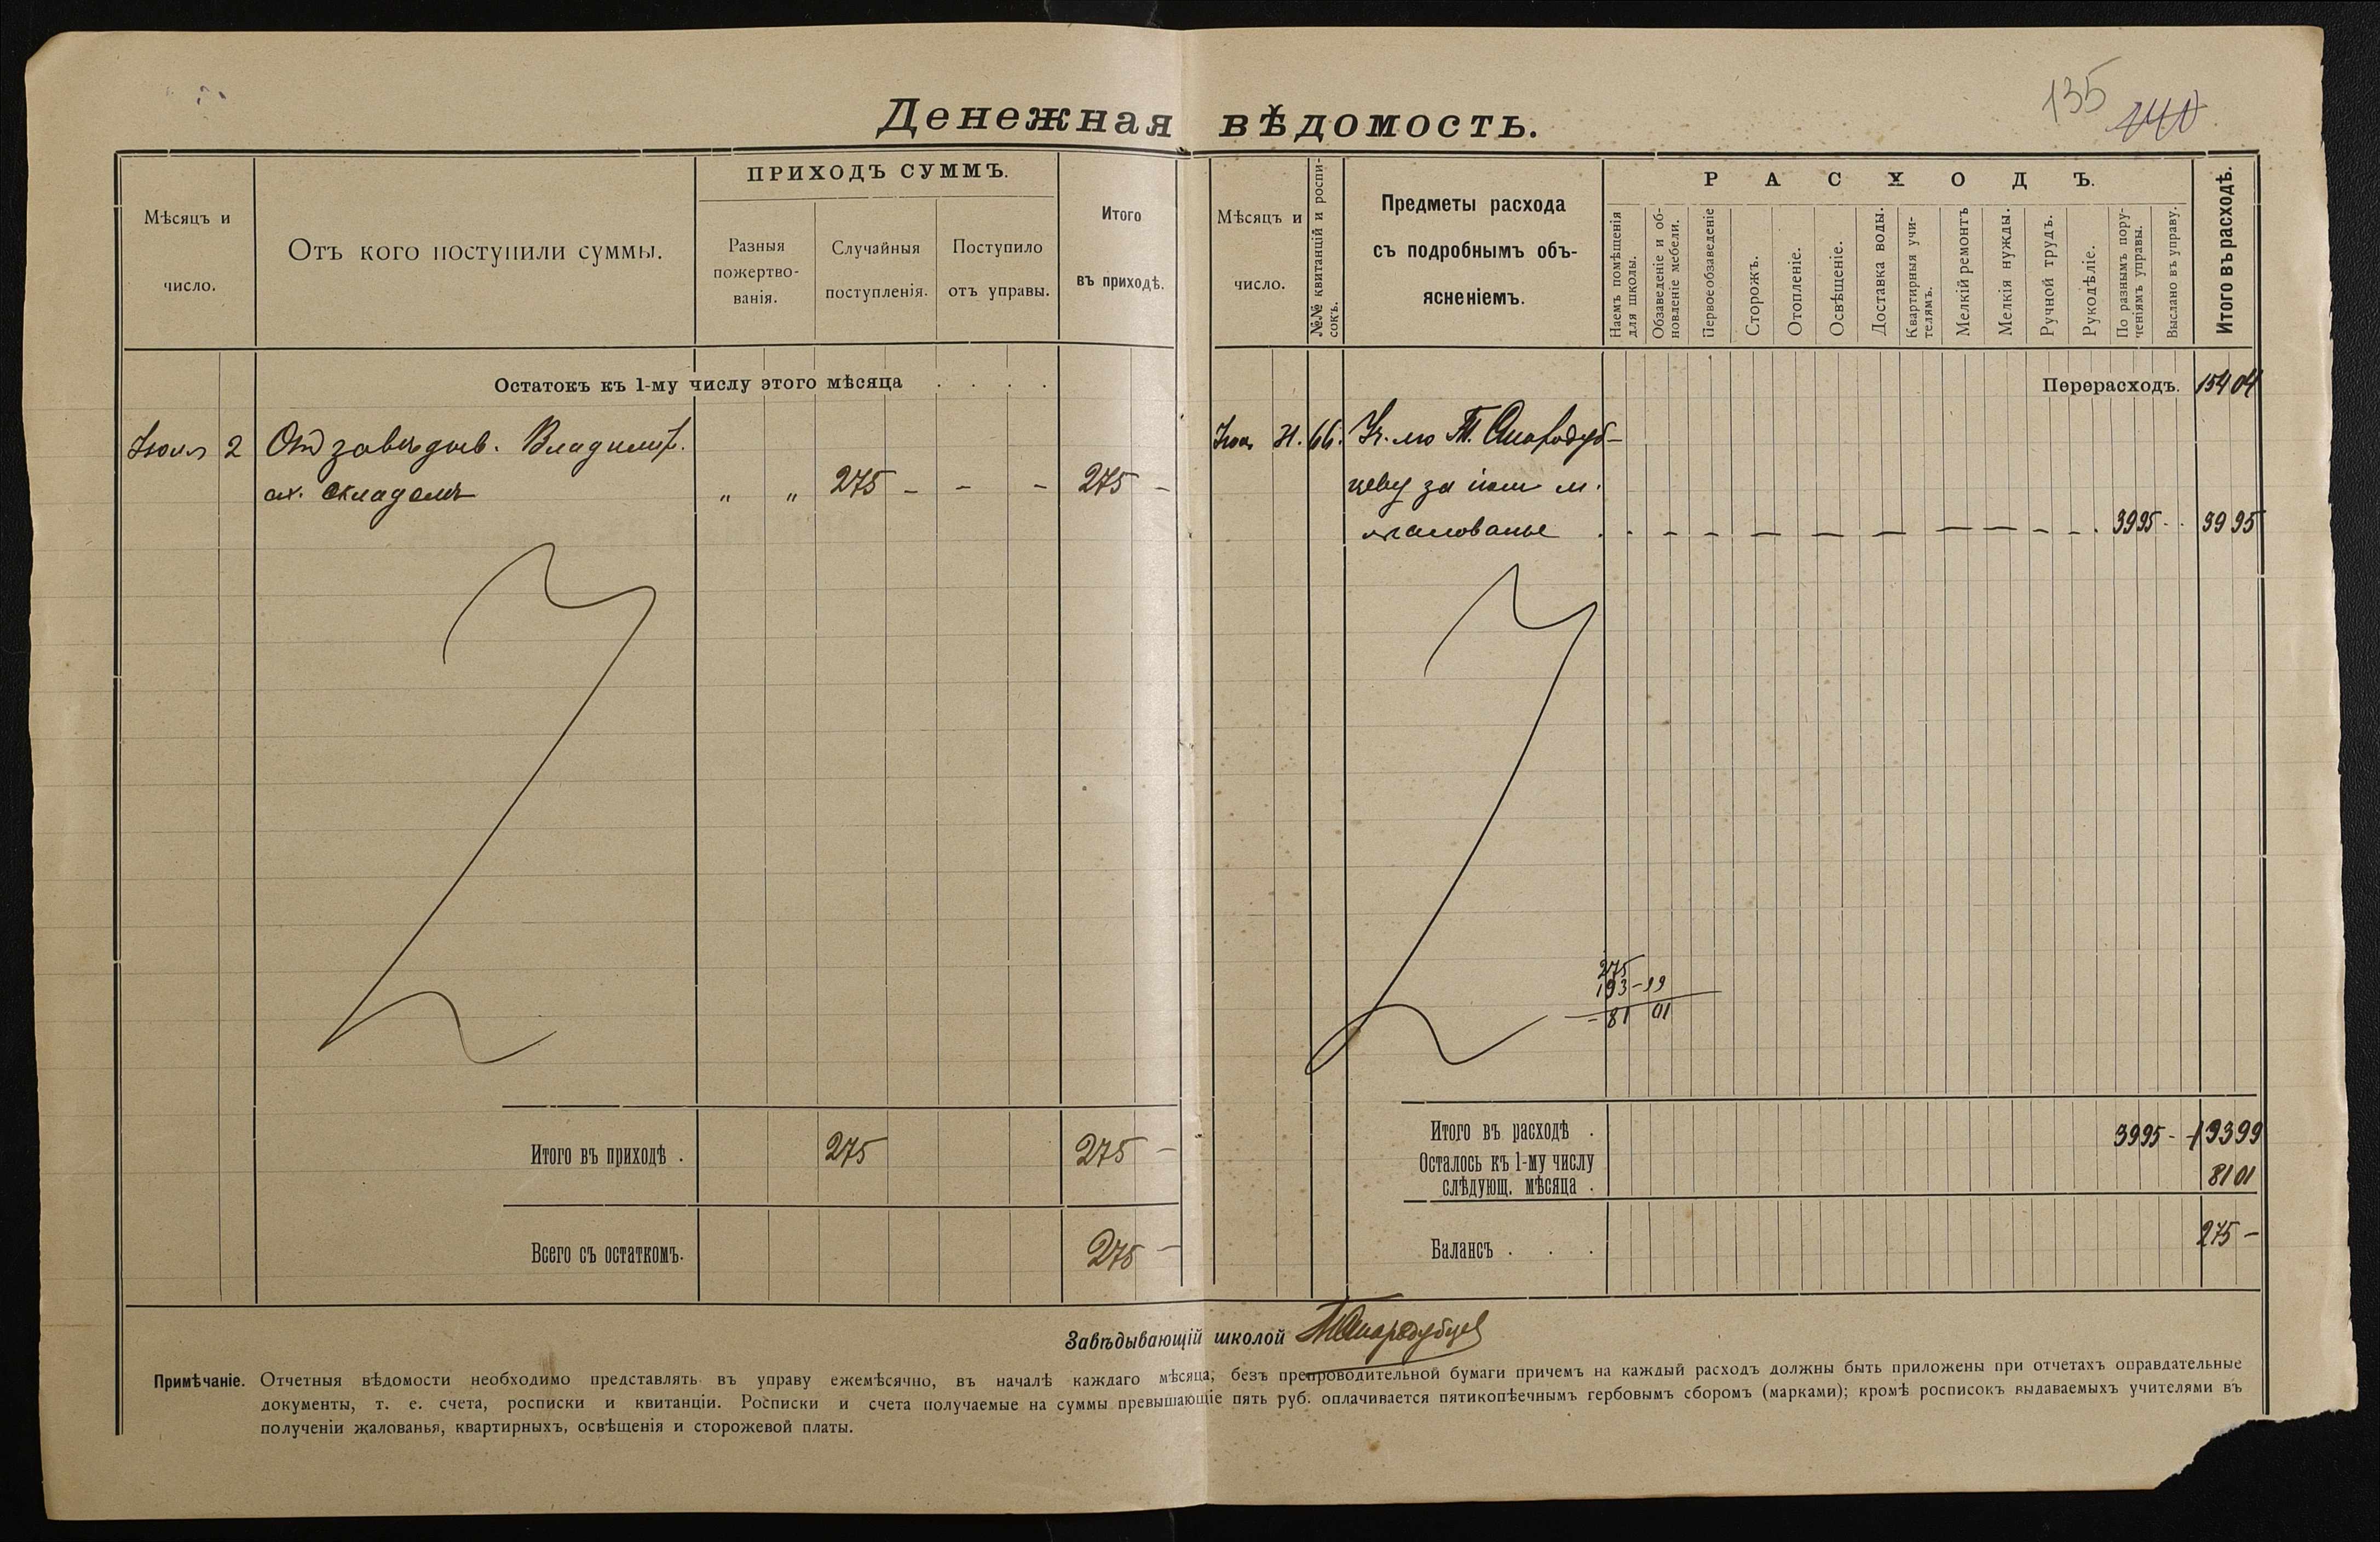 135
140
Денежная вѣдомость.
Мѣсяцъ и число.
Отъ кого поступили суммы.
ПРИХОДЪ СУММЪ.
Разныя пожертво-
ванія.
Случайныя поступленія.
Поступило отъ управы.
Итого въ приходѣ.
Остатокъ къ 1-му числу этого мѣсяца . . . .
Июля 2 От завѣдыв. Владимір.
складомъ „ „ 275 - - - 275 -
Итого въ приходѣ . 275 275 -
Всего съ остаткомъ. 275 -
Мѣсяцъ и число.
№№ квитанцій и роспи-
сокъ.
Предметы расхода
съ подробнымъ объ-
ясненіемъ.
РАСХОДЪ.
Наемъ помѣщенія для школы.
Обзаведеніе и об-
новленіе мебели.
Первое обзаведеніе
Сторожъ.
Отопленіе.
Освѣщеніе.
Доставка воды.
Квартирныя учи-
телямъ.
Мелкій ремонтъ
Мелкія нужды.
Ручной трудъ.
Рукодѣліе.
По разнымъ пору-
ченіямъ управы.
Выслано въ управу.
Итого въ расходѣ.
Перерасходъ. 154 04
66. Т. Стародуб-
цеву за м.
жалованье 39 95 39 95
275
193-99
81 01
Итого въ расходѣ . 39 95 - 193 99
Осталось къ 1-му числу
слѣдующ. мѣсяца . 81 01
Балансъ . . . 275 -
Завѣдывающій школой Т. Стародубцев
Примѣчаніе. Отчетныя вѣдомости необходимо представлять въ управу ежемѣсячно, въ началѣ каждаго мѣсяца, безъ препроводительной бумаги причемъ на каждый расходъ должны быть приложены при отчетахъ оправдательные
документы, т. е. счета, росписки и квитанціи. Росписки и счета получаемые на суммы превышающіе пять руб. оплачивается пятикопѣечнымъ гербовымъ сборомъ (марками); кромѣ росписокъ выдаваемыхъ учителями въ
полученіи жалованья, квартирныхъ, освѣщенія и сторожевой платы.